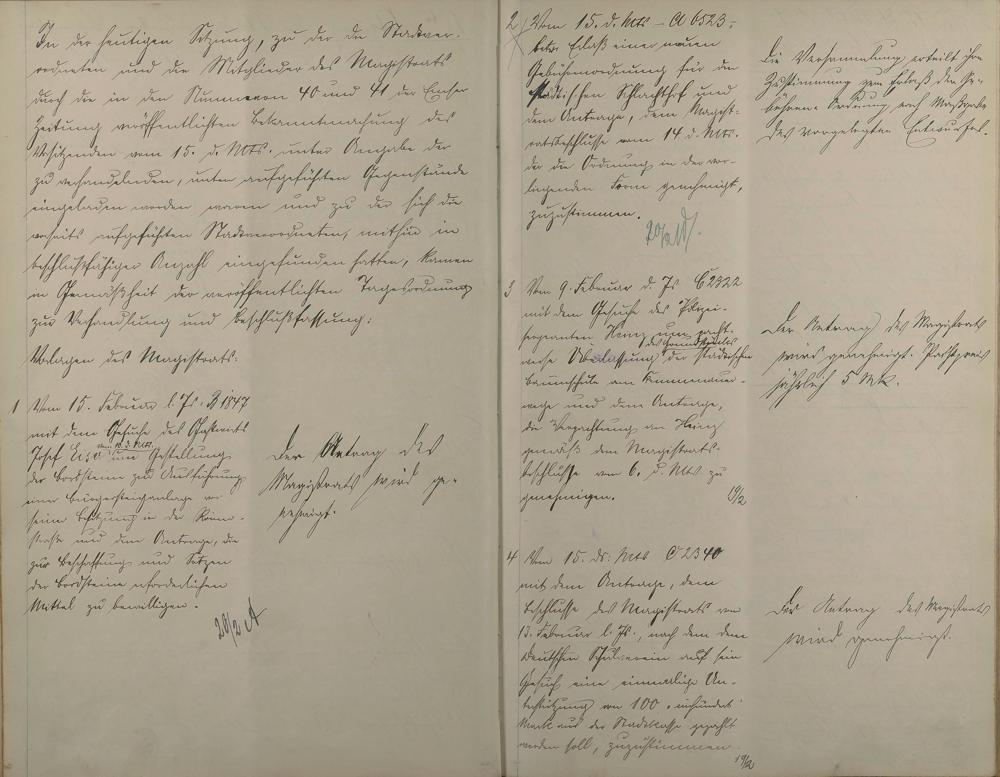 In der heutigen Sitzung, zu der die Stadtver-
ordneten und die Mitglieder des Magistrats
durch die in den Nummern 40 und 41 der Emser
Zeitung veröffentlichten Bekanntmachung des
Vorsitzenden vom 15. d. Mts. unter Angabe der
zu verhandelnden, unten aufgeführten Gegenstände
eingeladen worden waren und zu der sich die
umseits aufgeführten Stadtverordneten, mithin in
beschlußfähiger Anzahl eingefunden hatten, kamen
in Gemäßheit der veröffentlichten Tagesordnung
zur Verhandlung und Beschlußfassung:
Vorlagen des Magistrats:
1 Vom 15. Februar l. Js. 1847
mit dem Gesuche des Gastwirts
Josef vom 10. d. Mts. um Gestellung
der Bordsteine zur Ausführung
einer Bürgersteiganlage vor
seiner Besitzung in der Römer-
straße und dem Antrage, die
zur Beschaffung und Setzen
der Bordsteine erforderlichen
Mittel zu bewilligen.
20/2
Der Antrag des
Magistrats wird ge-
nehmigt.
2/ Vom 15. d. Mts - A 6523 -
betr. Erlaß einer neuen
Gebührenordnung für den
städtischen Schlachthof und
dem Antrage, dem Magist-
ratsbeschlusse vom 14. d. Mts.
der die Ordnung in der vor-
liegenden Form genehmigt,
zuzustimmen.
20/2
Die Versammlung erteilt ihre
Zustimmung zum Erlaß der Ge-
bühren-Ordnung nach Maßgabe
des vorgelegten Entwurfes.
3 Vom 9. Februar d. Js C 2322
mit dem Gesuche des Polizei-
sergeanten Heinz um pacht-
weise Überlassung des Grundstückes der städtischen
Baumschule am Kemmenauer-
wege und dem Antrage,
die Verpachtung an Heinz
gemäß dem Magistrats-
beschlusse vom 6. d. Mts. zu
genehmigen.
19/2
Der Antrag des Magistrats
wird genehmigt. Pachtpreis
jährlich 5 Mk.
4 Vom 15. ds. Mts C 2340
mit dem Antrage, dem
Beschlusse des Magistrats vom
13. Februar l. Js., nach dem dem
deutschen Schulverein auf sein
Gesuch eine einmalige Un-
terstützung von 100 - einhundert
Mark aus der Stadtkasse gezahlt
werden soll, zuzustimmen.
19/2
Der Antrag des Magistrats
wird genehmigt.